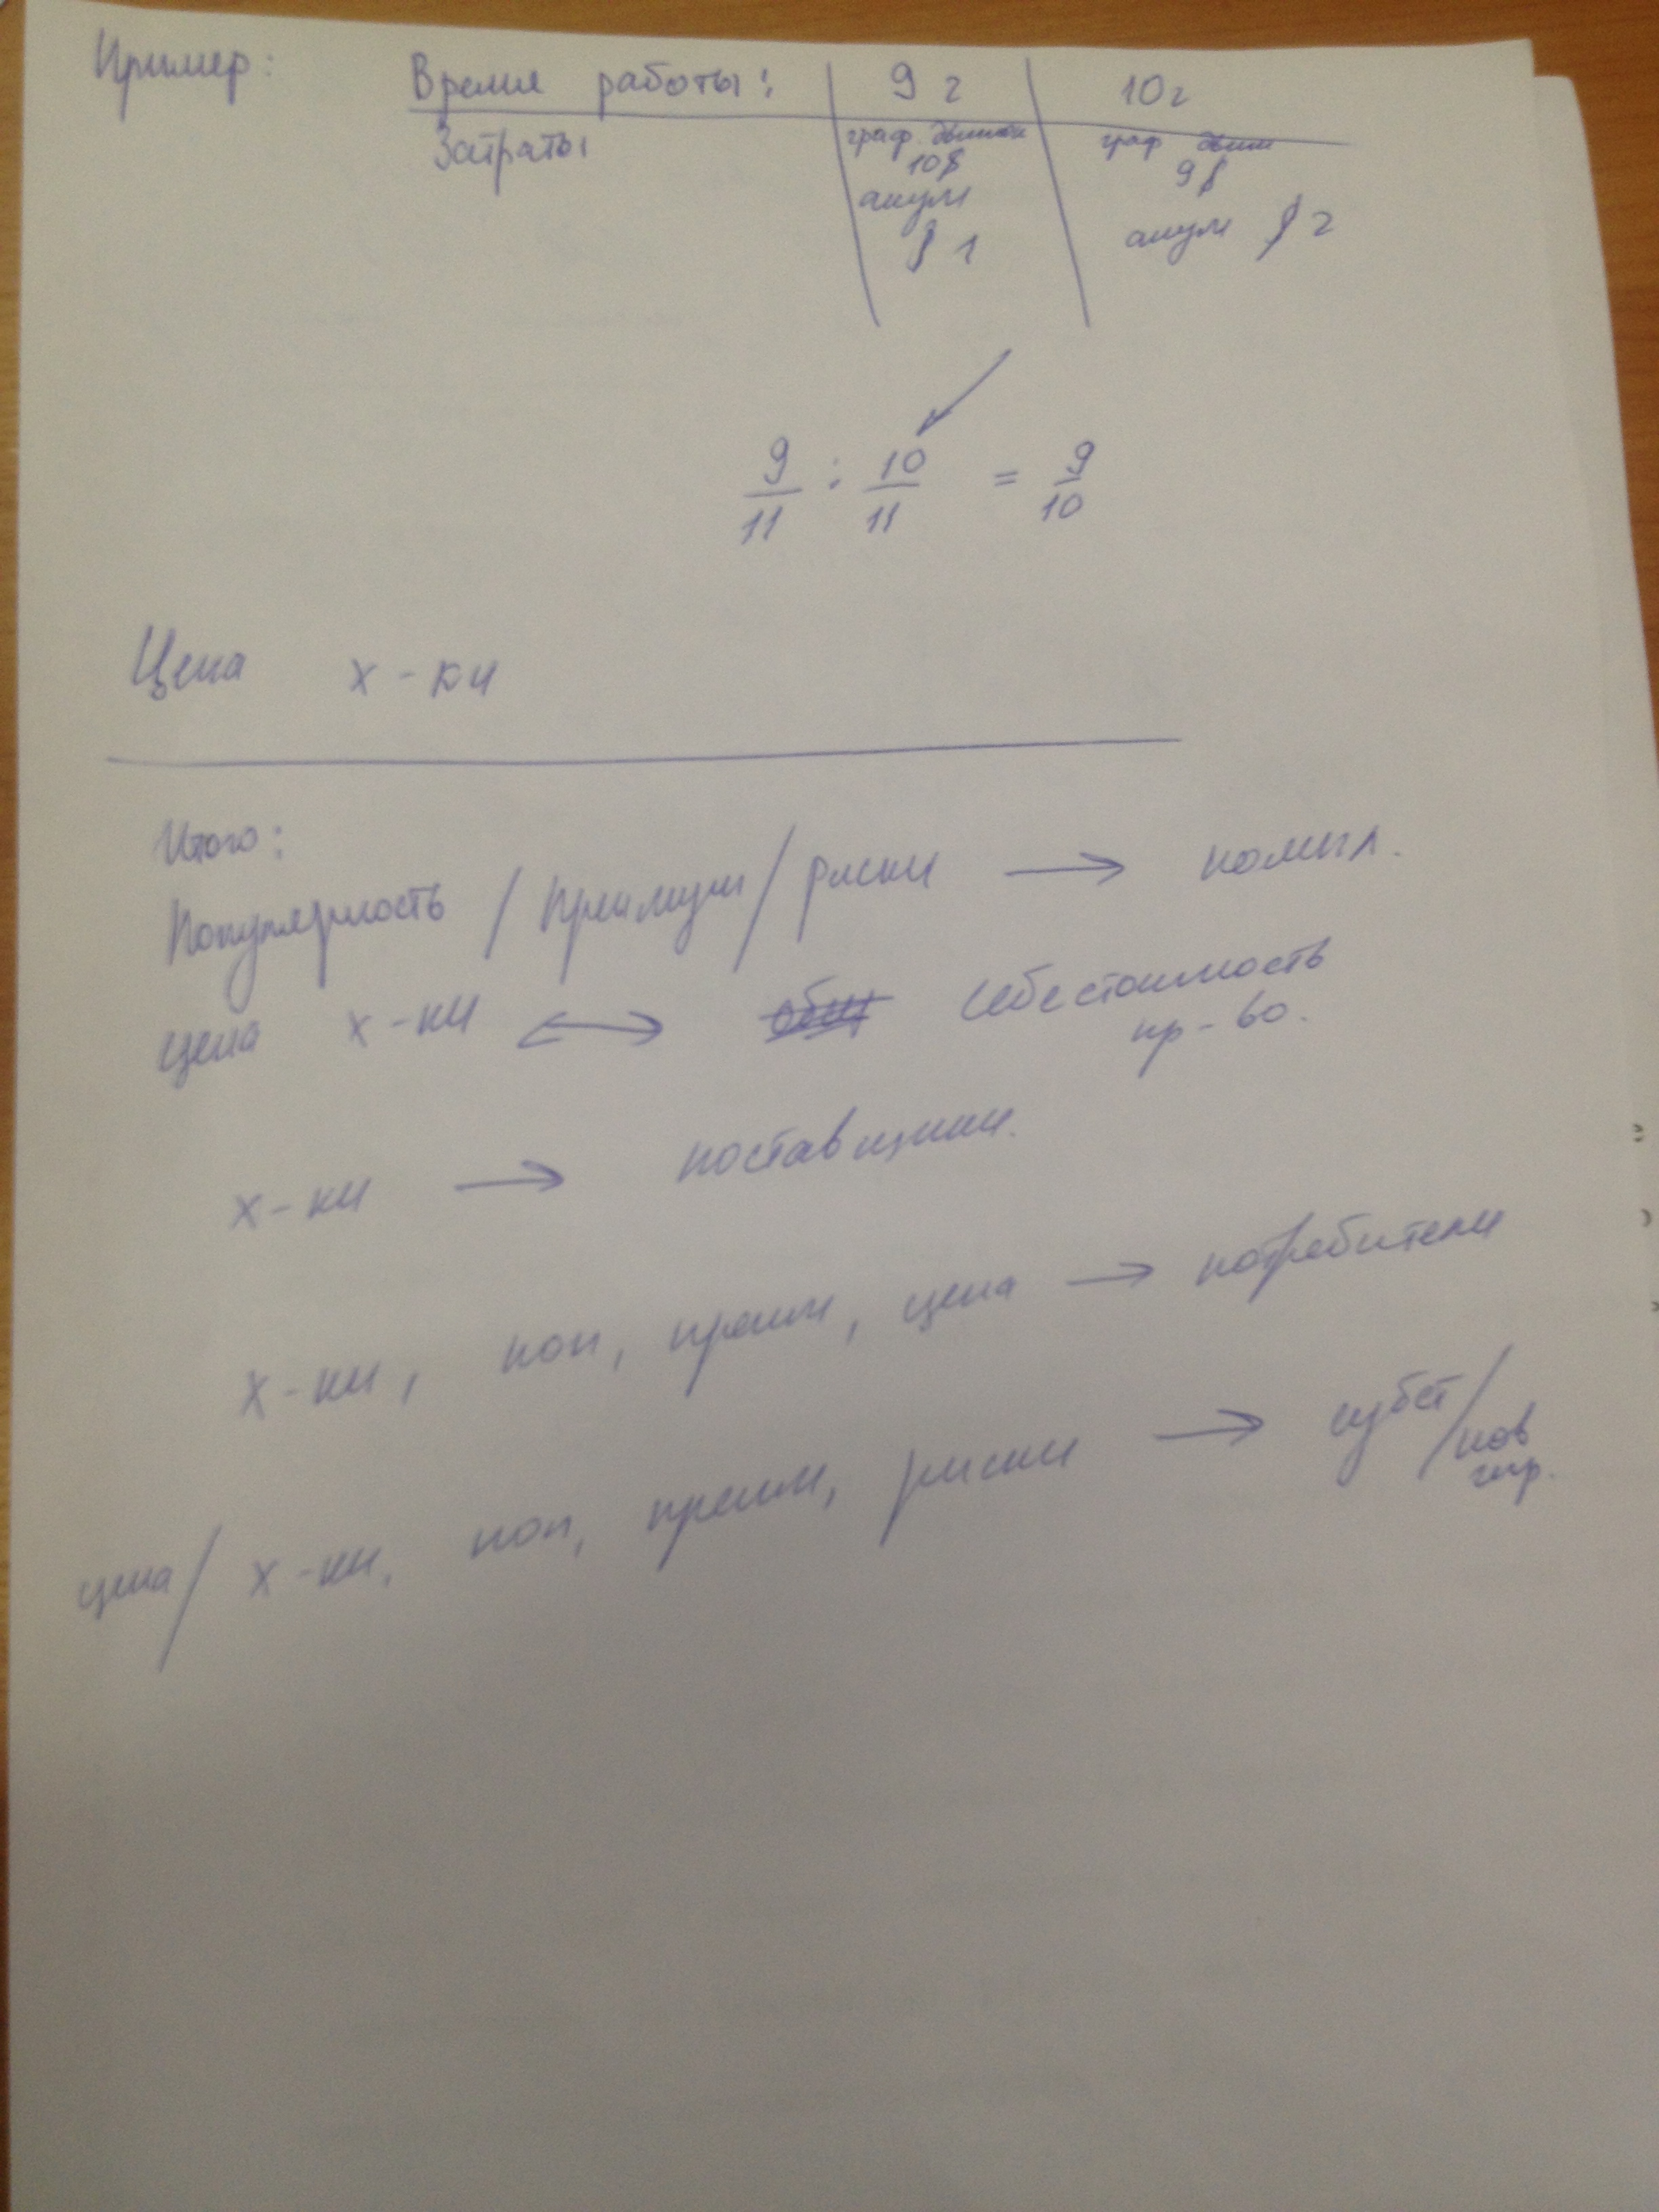 Пример: Время работы: 9 г 10 г
Затраты граф. движок 10$ граф движ 9$
акум $ 1 акум $ 2
9/11 : 10/11 = 9/10
Цена х-ки
Итого:
Популярность / преимущ / риски → компл.
цена х-ки ↔ себестоимость
пр-во.
х-ки → поставщики.
х-ки, поп, преим, цена → потребители
цена / х-ки, поп, преим, риски → субст / нов